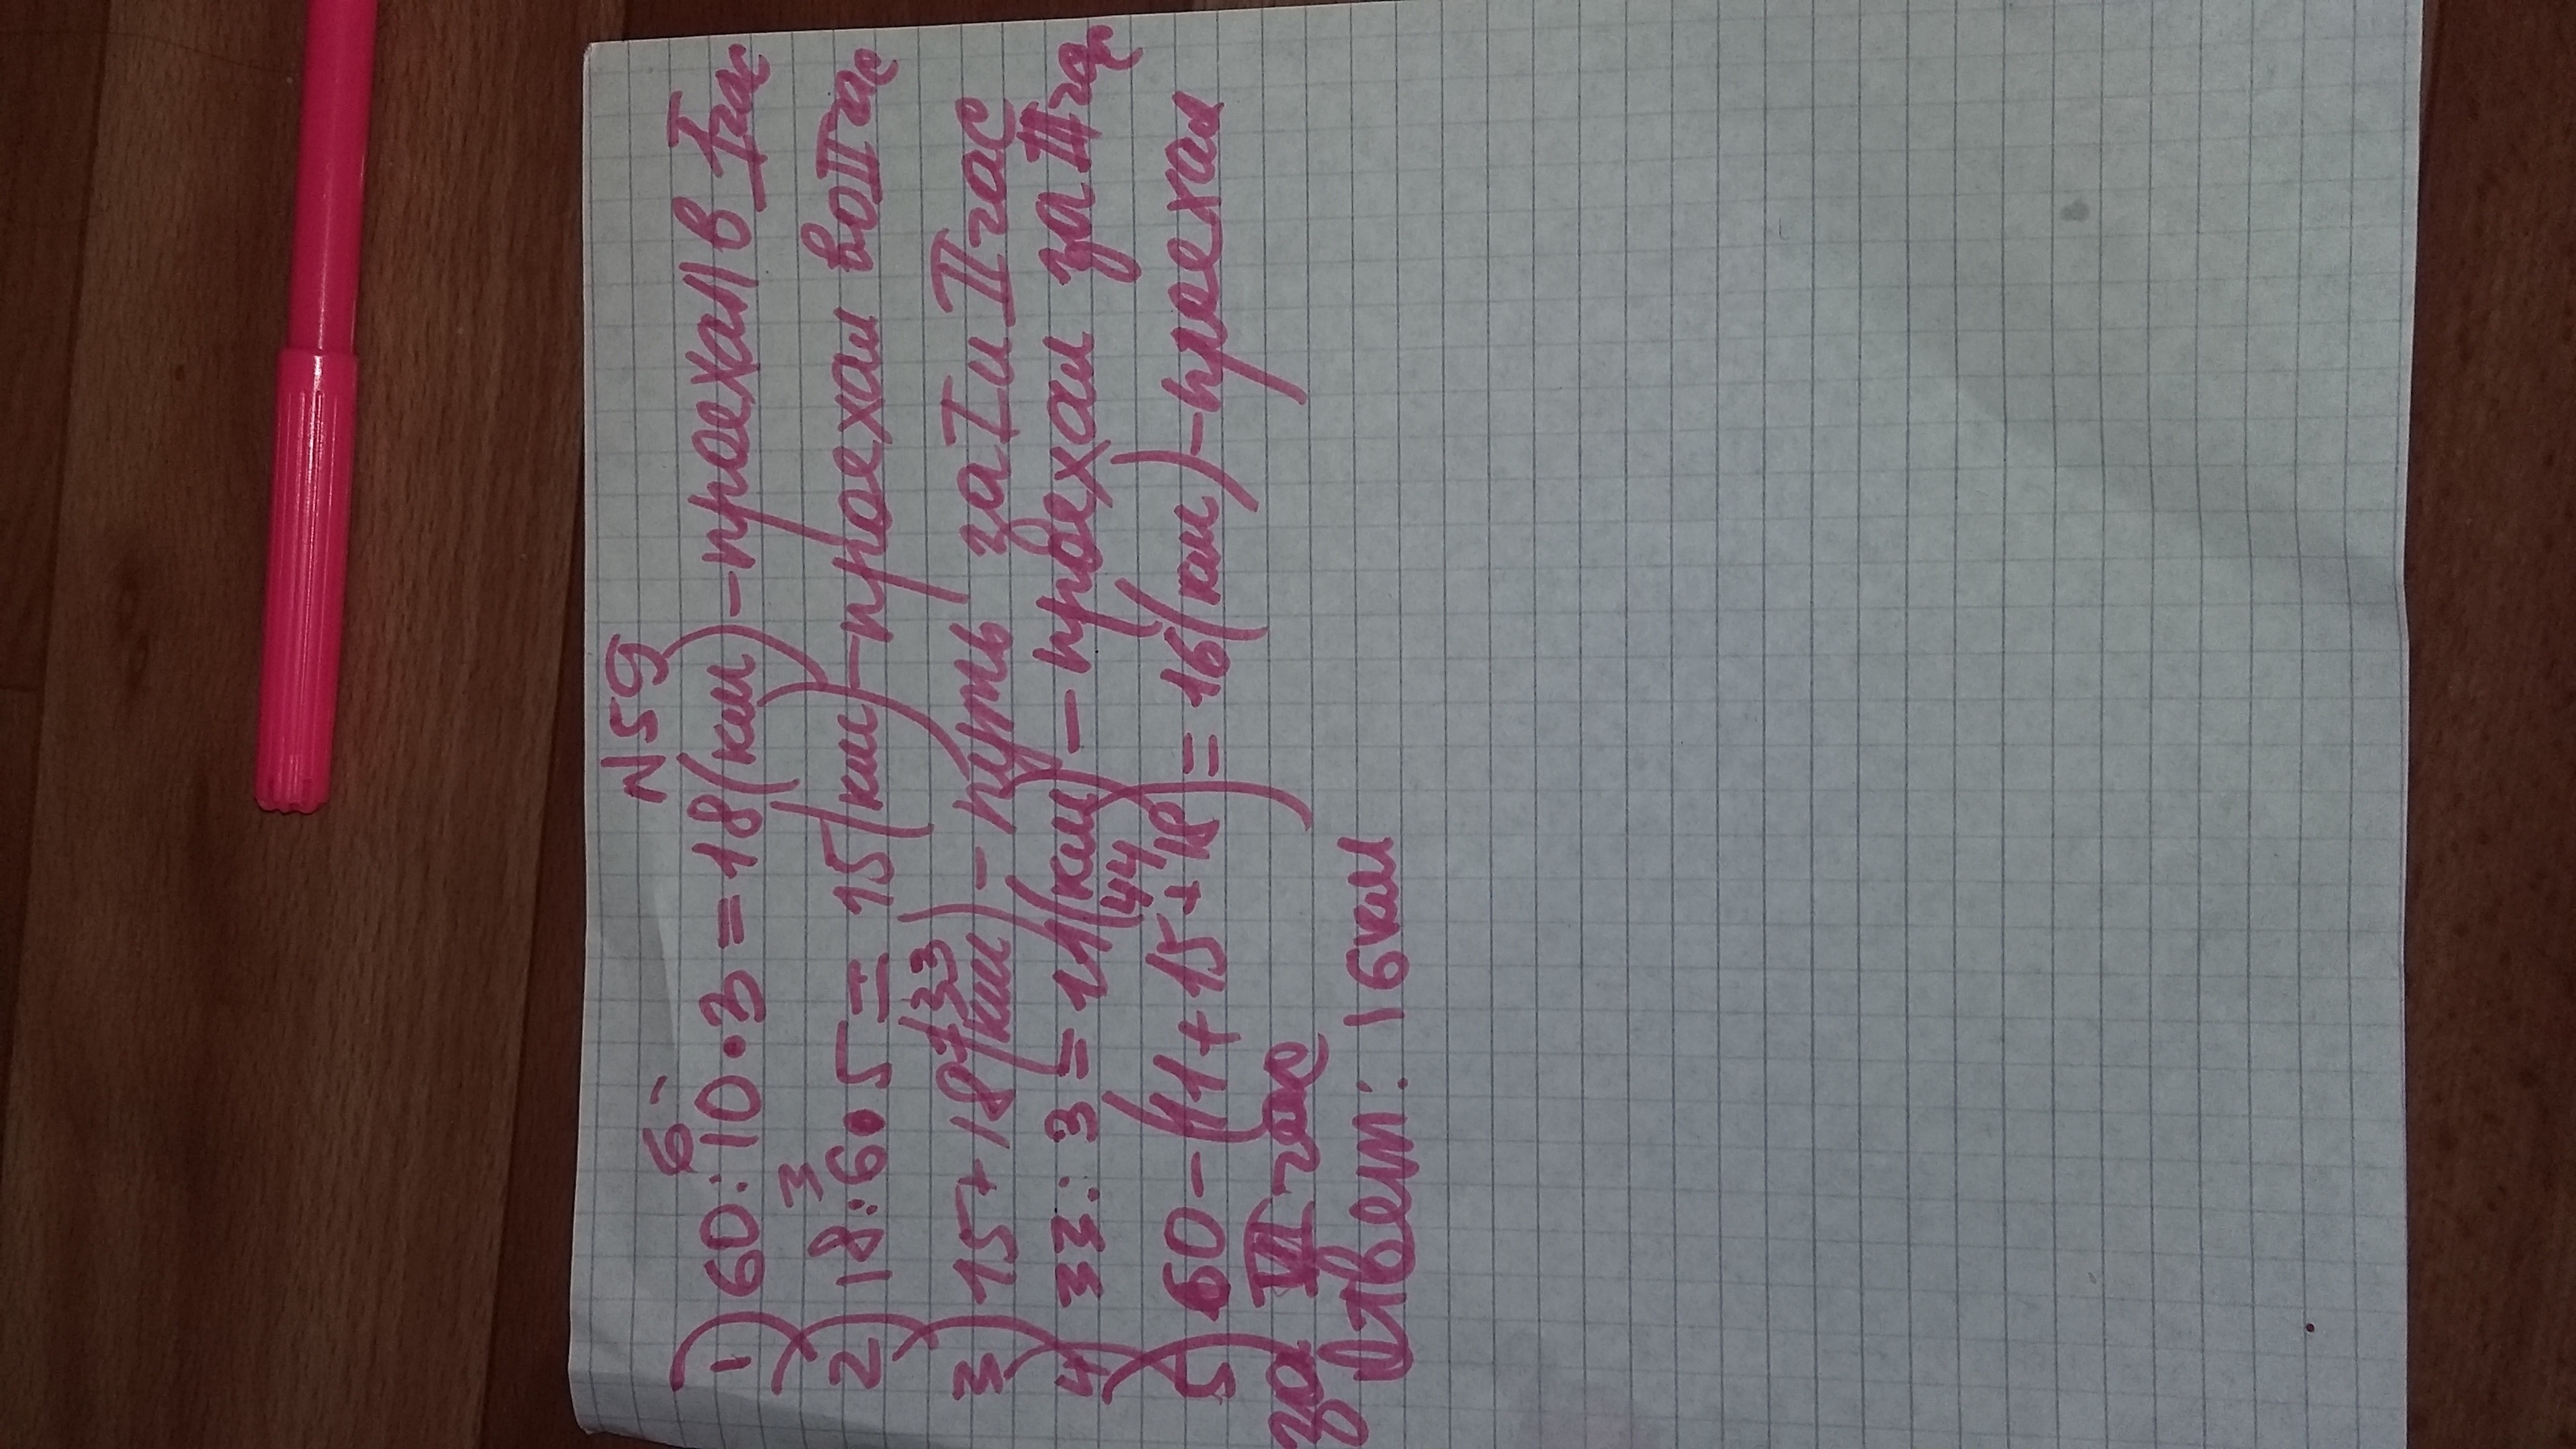 N59
6
1) 60:10•3=18(км)-проехал в I час
3
2) 18:6•5=15(км)-проехал во II час
33
3) 15+18=(км)-путь за I и II час
4) 33:3=11(км)-проехал за
44
5) 60-(11+15+18)=16(км)-проехал
за час
Ответ: 16 км